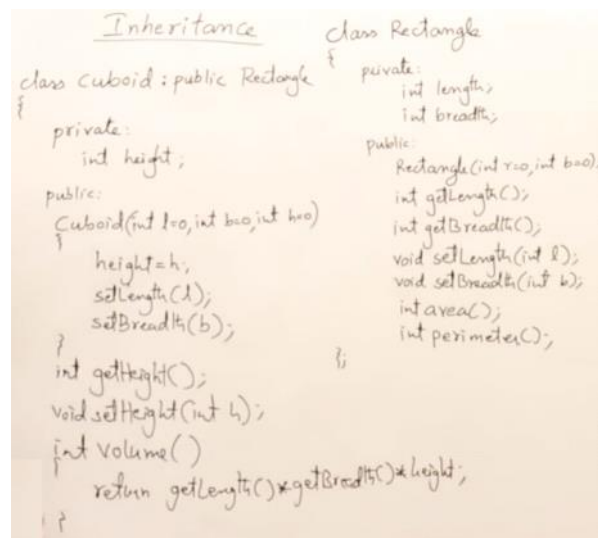 Inheritance
class Cuboid : public Rectangle
{
private:
int height;
public:
Cuboid(int l=0, int b=0, int h=0)
{
height=h;
setLength(l);
setBreadth(b);
}
int getHeight();
void setHeight(int h);
int volume()
{
return getLength()*getBreadth()*height;
}
class Rectangle
{
private:
int length;
int breadth;
public:
Rectangle(int r=0, int b=0);
int getLength();
int getBreadth();
void setLength(int l);
void setBreadth(int b);
int area();
int perimeter();
};